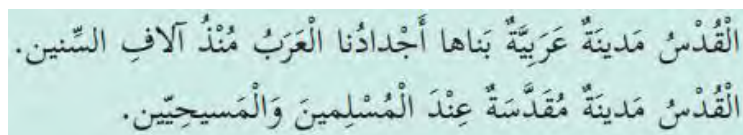 الْقُدْسُ مَدينَةٌ عَرَبِيَّةٌ بَناها أَجْدادُنا الْعَرَبُ مُنْذُ آلافِ السِّنين.
الْقُدْسُ مَدينَةٌ مُقَدَّسَةٌ عِنْدَ الْمُسْلِمينَ وَالْمَسيحِيّين.